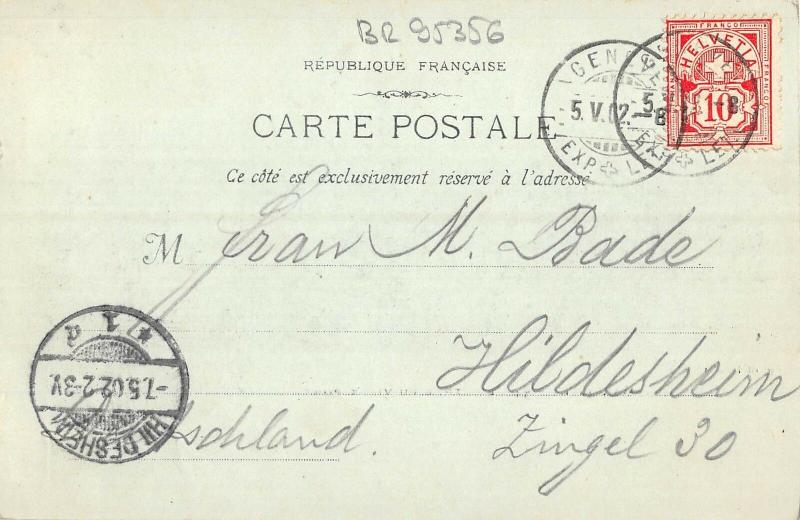 BR 95356
RÉPUBLIQUE FRANÇAISE
CARTE POSTALE
Ce côté est exclusivement réservé à l'adresse
FRANCO
HELVETIA
FRANCO
10
GEN
5.V.02.-8
EXP. LE
5. -8
EXP LET
M Frau M. Bade
Hildesheim
Zingel 30
schland.
* 1 d
-7.5.02.2-3V.
HILDESHEIM